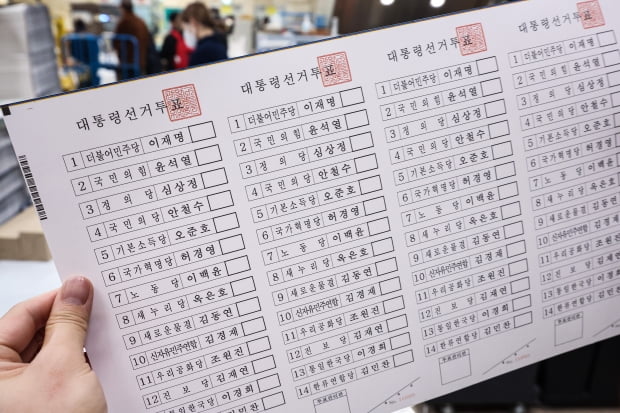 대통령선거투표
1 더불어민주당 이재명
2 국민의힘 윤석열
3 정의당 심상정
4 국민의당 안철수
5 기본소득당 오준호
6 국가혁명당 허경영
7 노동당 이백윤
8 새누리당 옥은호
9 새로운물결 김동연
10 신자유민주연합 김경재
11 우리공화당 조원진
12 진보당 김재연
13 통일한국당 이경희
김민찬
대통령선거투표
1 더불어민주당 이재명
2 국민의힘 윤석열
3 정의당 심상정
4 국민의당 안철수
5 기본소득당 오준호
6 국가혁명당 허경영
7 노동당 이백윤
8 새누리당 옥은호
9 새로운물결 김동연
10 신자유민주연합 김경재
11 우리공화당 조원진
12 진보당 김재연
13 통일한국당 이경희
14 한류연합당 김민찬
투표관리관
대통령선거투표
1 더불어민주당 이재명
2 국민의힘 윤석열
3 정의당 심상정
4 국민의당 안철수
5 기본소득당 오준호
6 국가혁명당 허경영
7 노동당 이백윤
8 새누리당 옥은호
9 새로운물결 김동연
10 신자유민주연합 김경재
11 우리공화당 조원진
12 진보당 김재연
13 통일한국당 이경희
14 한류연합당 김민찬
투표관리관
대통령선거투표
1 더불어민주당 이재명
2 국민의힘 윤석열
3 정의당 심상정
4 국민의당 안철수
5 기본소득당 오준호
6 국가혁명당 허경영
7 노동당 이백윤
8 새누리당 옥은호
9 새로운물결 김동연
10 신자유민주연합 김경재
11 우리공화당 조원진
12 진보당 김재연
13 통일한국당 이경희
14 한류연합당 김민찬
투표관리관